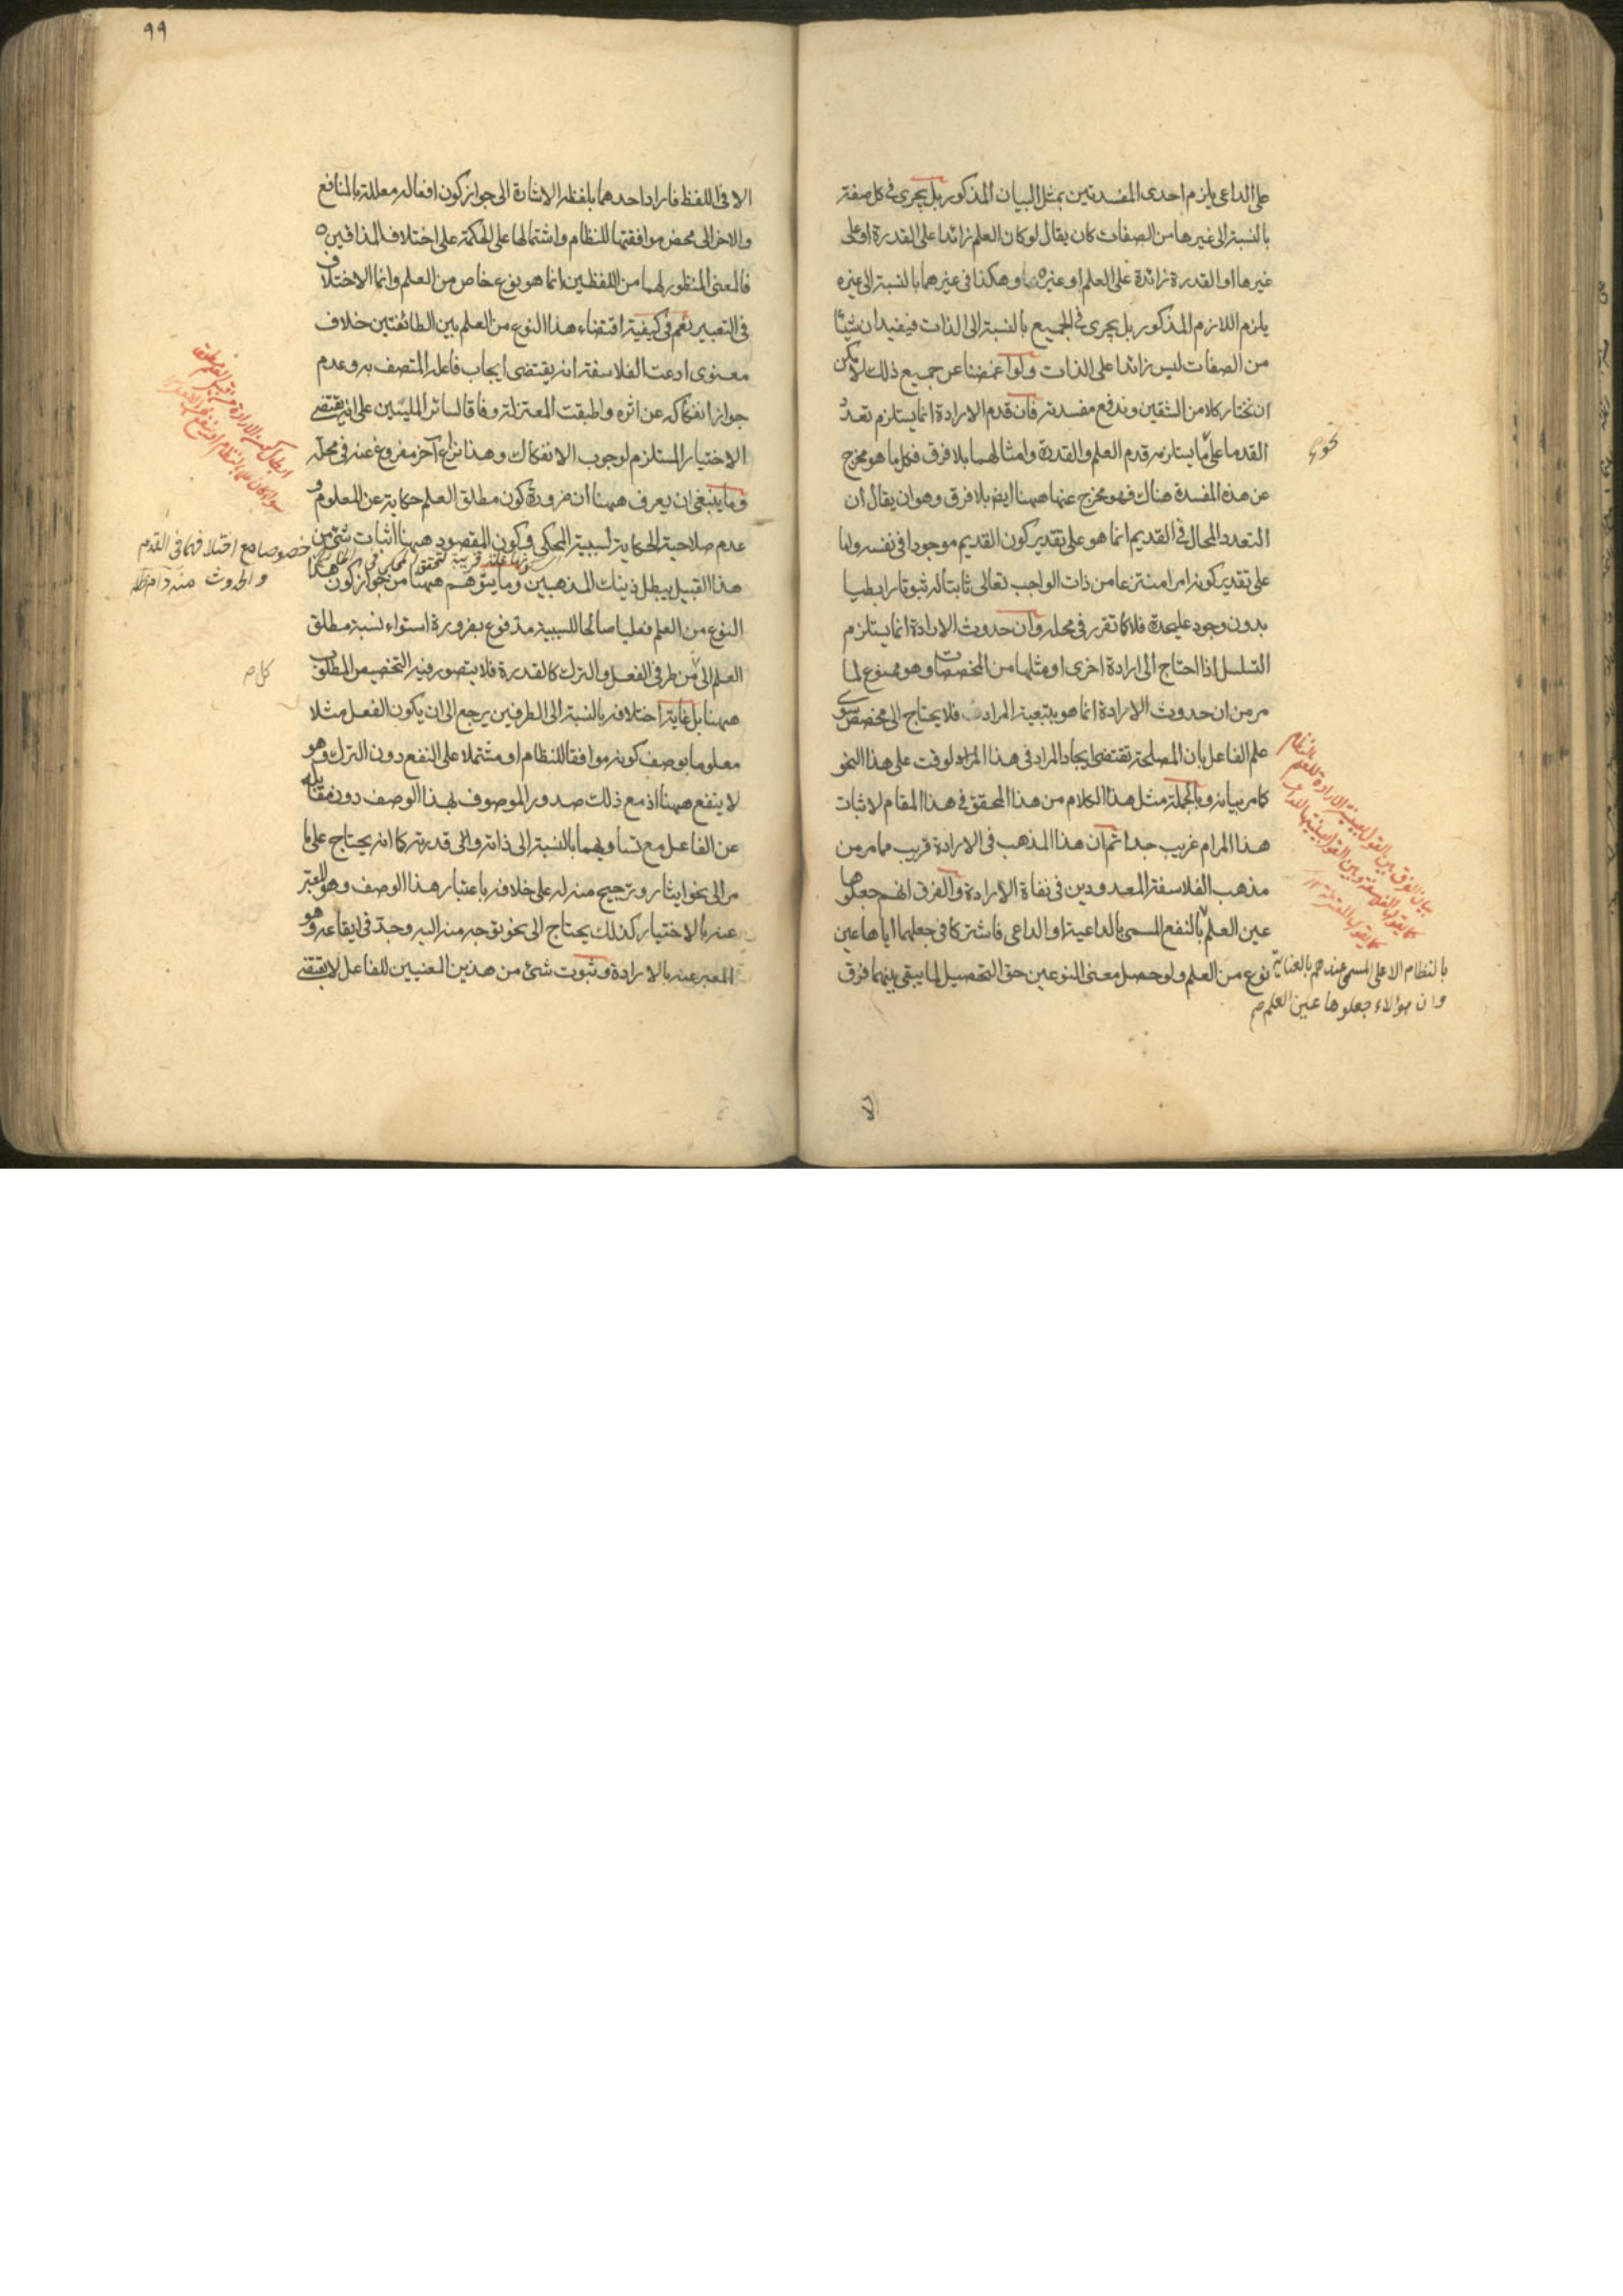 على الداعى يلزم احدى المفسدتين بمثل البيان المذكور بل يجرى فى كل صفة
بالنسبة الى غيرها من الصفات كان يقال لو كان العلم زائدا على القدرة او على
غيرها او القدرة زائدة على العلم او غيره وهكذا فى غيرهما بالنسبة الى غيره
يلزم اللازم المذكور بل يجرى فى الجميع بالنسبة الى الذات فيفيد ان شيئا
من الصفات ليس زائدا على الذات ولو اغمضنا عن جميع ذلك لا يمكن
ان نختار كلا من الشقين وندفع مفسدته فان قدم الارادة انما يستلزم تعدد
القدما على ما يستلزمه قدم العلم والقدرة وامثالهما بلا فرق فكل ما هو مخرج
نحو
عن هذه المفسدة هناك فهو مخرج عنها ههنا ايضا بلا فرق وهو ان يقال ان
التعدد المحال فى القديم انما هو على تقدير كون القديم موجودا فى نفسه واما
على تقدير كونه امرا منتزعا من ذات الواجب تعالى ثابتا له ثبوتا رابطيا
بدون وجود عليحدة فلا كما تقرر فى محله وان حدوث الارادة انما يستلزم
التسلسل اذا احتاج الى ارادة اخرى او مثلها من المخصصات وهو ممنوع لما
مر من ان حدوث الارادة انما هو بتبعية المراد فلا يحتاج الى مخصص سوى
علم الفاعل بان المصلحة تقتضى ايجاد المراد فى هذا الوقت على هذا النحو
كما مر بيانه وبالجملة مثل هذا الكلام من هذا المحقق فى هذا المقام لاثبات
هذا المرام غريب جدا ثم ان هذا المذهب فى الارادة قريب مما مر من
مذهب الفلاسفة المعدودين فى نفاة الارادة والفرق انهم جعلوها
عين العلم بالنفع المسمى بالداعية او الداعى فاشتركا فى جعلهما اياها عين
نوع من العلم ولو حصل معنى النوعين حق التحصيل لما يبقى بينهما فرق
بيان الفرق بين القول بعينية الارادة للعلم بالنظام
كما يقول الفلاسفة وبين القول بعينيتها للداعى
كما يقول المعتزلة
بالنظام الاعلى المسمى عندهم بالعناية
وان هؤلاء جعلوها عين العلم صح
٩٩
الا فى اللفظ فاراد احدهما بلفظه الاشارة الى جواز كون افعاله معللة بالمنافع
والاخر الى محض موافقتها للنظام واشتمالها على الحكمة على اختلاف المذاقين
فالمعنى المنظور لهما من اللفظين انما هو نوع خاص من العلم وانما الاختلاف
فى التعبير نعم فى كيفية اقتضاء هذا النوع من العلم بين الطائفتين خلاف
معنوى ادعت الفلاسفة انه يقتضى ايجاب فاعله المتصف به وعدم
جواز انفكاكه عن اثره واطبقت المعتزلة وفاقا لسائر المليين على انه يقتضى
الاختيار المستلزم لوجوب الانفكاك وهذا نزاع آخر مفروغ عنه فى محله
ومما ينبغى ان يعرف ههنا ان ضرورة كون مطلق العلم حكاية عن المعلوم و
عدم صلاحية الحكاية لسببية المحكى وكون المقصود ههنا اثبات شئ من
هذا القبيل يبطل ذينك المذهبين وما يتوهم ههنا من جواز كون هذا
النوع من العلم فعليا صالحا للسببية مدفوع بضرورة استواء نسبة مطلق
العلم الى من طرفى الفعل والترك كالقدرة فلا يتصور فيه التخصيص المطلوب
ههنا بل غاية اختلافه بالنسبة الى الطرفين يرجع الى ان يكون الفعل مثلا
معلوما بوصف كونه موافقا للنظام او مشتملا على النفع دون الترك وهو
لا ينفع ههنا اذ مع ذلك صدور الموصوف بهذا الوصف دون مقابله
عن الفاعل مع تساويهما بالنسبة الى ذاته والى قدرته كما انه يحتاج على ما
مر الى نحو ايثار وترجيح منه له على خلافه باعتبار هذا الوصف وهو المعبر
عنه بالاختيار كذلك يحتاج الى نحو توجه منه اليه وجد فى ايقاعه وهو
المعبر عنه بالارادة وثبوت شئ من هذين المعنيين للفاعل لا يقتضى
خصوصا مع اختلافهما فى القدم
والحدوث منه
كل صح